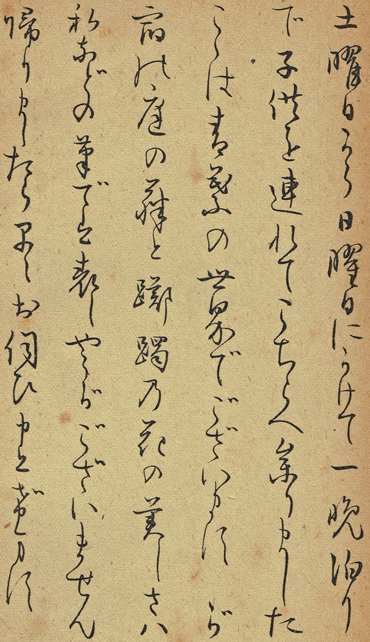 土曜日から日曜日にかけて一晩泊り
で子供を連れてこちらへ参りました
こゝは青葉の世界でございます が
宿の庭の藤と躑躅の花の美しさは
私などの筆では表しやうがございません
帰りましたら早く お伺ひ申上げます